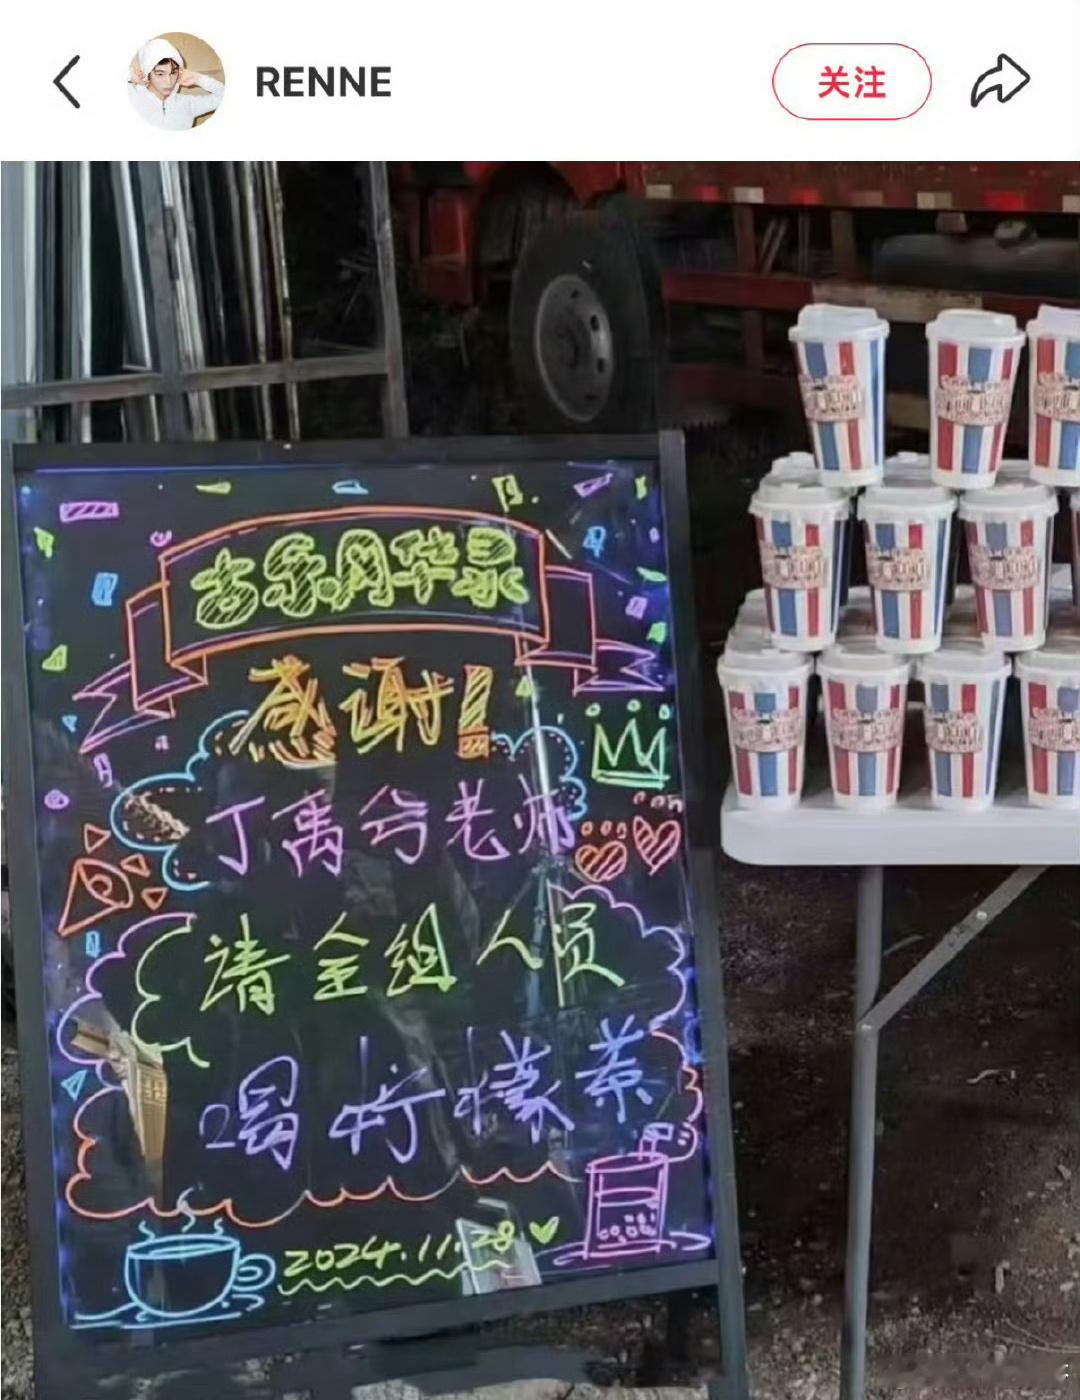 RENNE
关注
古乐风华录
感谢!
丁禹兮老师
请全组人员
喝柠檬茶
2024.11.28